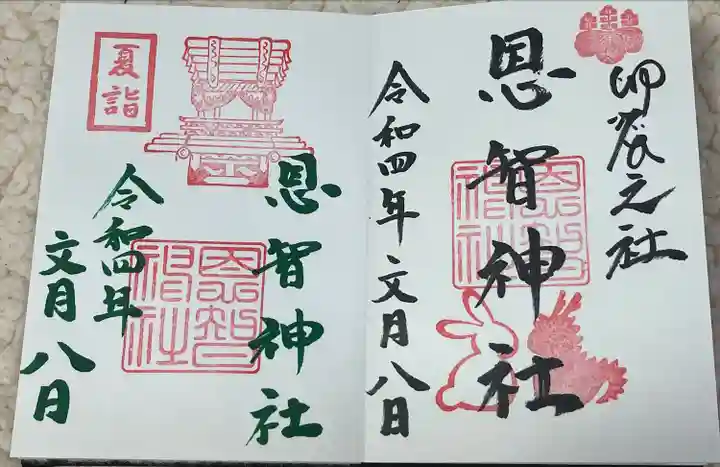 卯辰之社
恩智神社
令和四年文月八日
恩智神社
恩智神社
恩智神社
令和四年
文月八日
夏詣
恩智神社